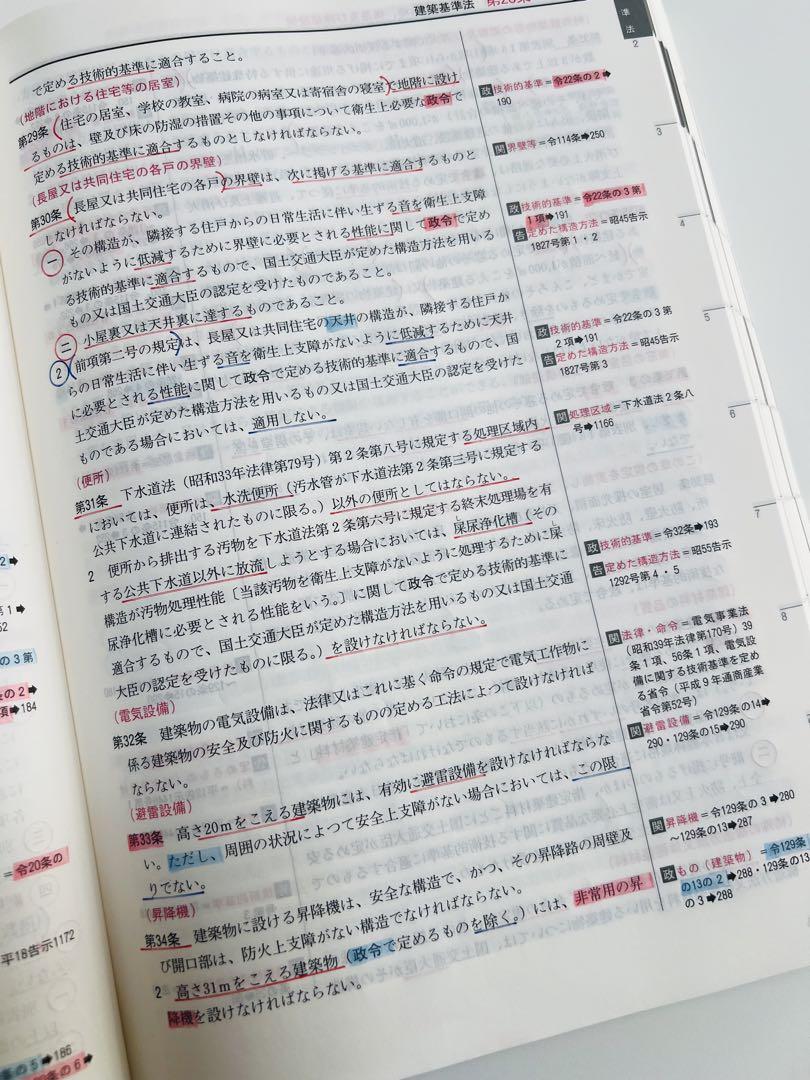 建築基準法
準
法
で定める技術的基準に適合すること。
(地階における住宅等の居室)
第29条 住宅の居室、学校の教室、病院の病室又は寄宿舎の寝室で地階に設け
るものは、壁及び床の防湿の措置その他の事項について衛生上必要な政令で
定める技術的基準に適合するものとしなければならない。
(長屋又は共同住宅の各戸の界壁)
第30条 長屋又は共同住宅の各戸の界壁は、次に掲げる基準に適合するものと
しなければならない。
一 その構造が、隣接する住戸からの日常生活に伴い生ずる音を衛生上支障
がないように低減するために界壁に必要とされる性能に関して政令で定め
る技術的基準に適合するもので、国土交通大臣が定めた構造方法を用いる
もの又は国土交通大臣の認定を受けたものであること。
二 小屋裏又は天井裏に達するものであること。
2 前項第二号の規定は、長屋又は共同住宅の天井の構造が、隣接する住戸か
らの日常生活に伴い生ずる音を衛生上支障がないように低減するために天井
に必要とされる性能に関して政令で定める技術的基準に適合するもので、国
土交通大臣が定めた構造方法を用いるもの又は国土交通大臣の認定を受けた
ものである場合においては、適用しない。
(便所)
第31条 下水道法(昭和33年法律第79号)第2条第八号に規定する処理区域内
においては、便所は、水洗便所(汚水管が下水道法第2条第三号に規定する
公共下水道に連結されたものに限る。)以外の便所としてはならない。
2 便所から排出する汚物を下水道法第2条第六号に規定する終末処理場を有
する公共下水道以外に放流しようとする場合においては、屎尿浄化槽(その
構造が汚物処理性能〔当該汚物を衛生上支障がないように処理するために屎
尿浄化槽に必要とされる性能をいう。〕に関して政令で定める技術的基準に
適合するもので、国土交通大臣が定めた構造方法を用いるもの又は国土交通
大臣の認定を受けたものに限る。)を設けなければならない。
(電気設備)
第32条 建築物の電気設備は、法律又はこれに基く命令の規定で電気工作物に
係る建築物の安全及び防火に関するものの定める工法によつて設けなければ
ならない。
(避雷設備)
第33条 高さ20mをこえる建築物には、有効に避雷設備を設けなければならな
い。ただし、周囲の状況によつて安全上支障がない場合においては、この限
りでない。
(昇降機)
第34条 建築物に設ける昇降機は、安全な構造で、かつ、その昇降路の周壁及
び開口部は、防火上支障がない構造でなければならない。
2 高さ31mをこえる建築物(政令で定めるものを除く。)には、非常用の昇
降機を設けなければならない。
政 技術的基準=令22条の2➡
190
関 界壁等=令114条➡250
政 技術的基準=令22条の3第
1項➡191
告 定めた構造方法=昭45告示
1827号第1・2
政 技術的基準=令22条の3第
2項➡191
告 定めた構造方法=昭45告示
1827号第3
関 処理区域=下水道法2条八
号➡1166
政 技術的基準=令32条➡193
告 定めた構造方法=昭55告示
1292号第4・5
関 法律・命令=電気事業法
(昭和39年法律第170号)39
条1項、56条1項、電気設
備に関する技術基準を定め
る省令(平成9年通商産業
省令第52号)
関 避雷設備=令129条の14➡
290・129条の15➡290
関 昇降機=令129条の3➡280
~129条の13➡287
政 もの(建築物)=令129条
の13の2➡288・129条の13
の3➡288
2
3
4
5
6
7
8
2➡
第1➡
52
の3第
の2➡
項➡184
=令20条の
平18告示1172
条の5➡186
条の6➡